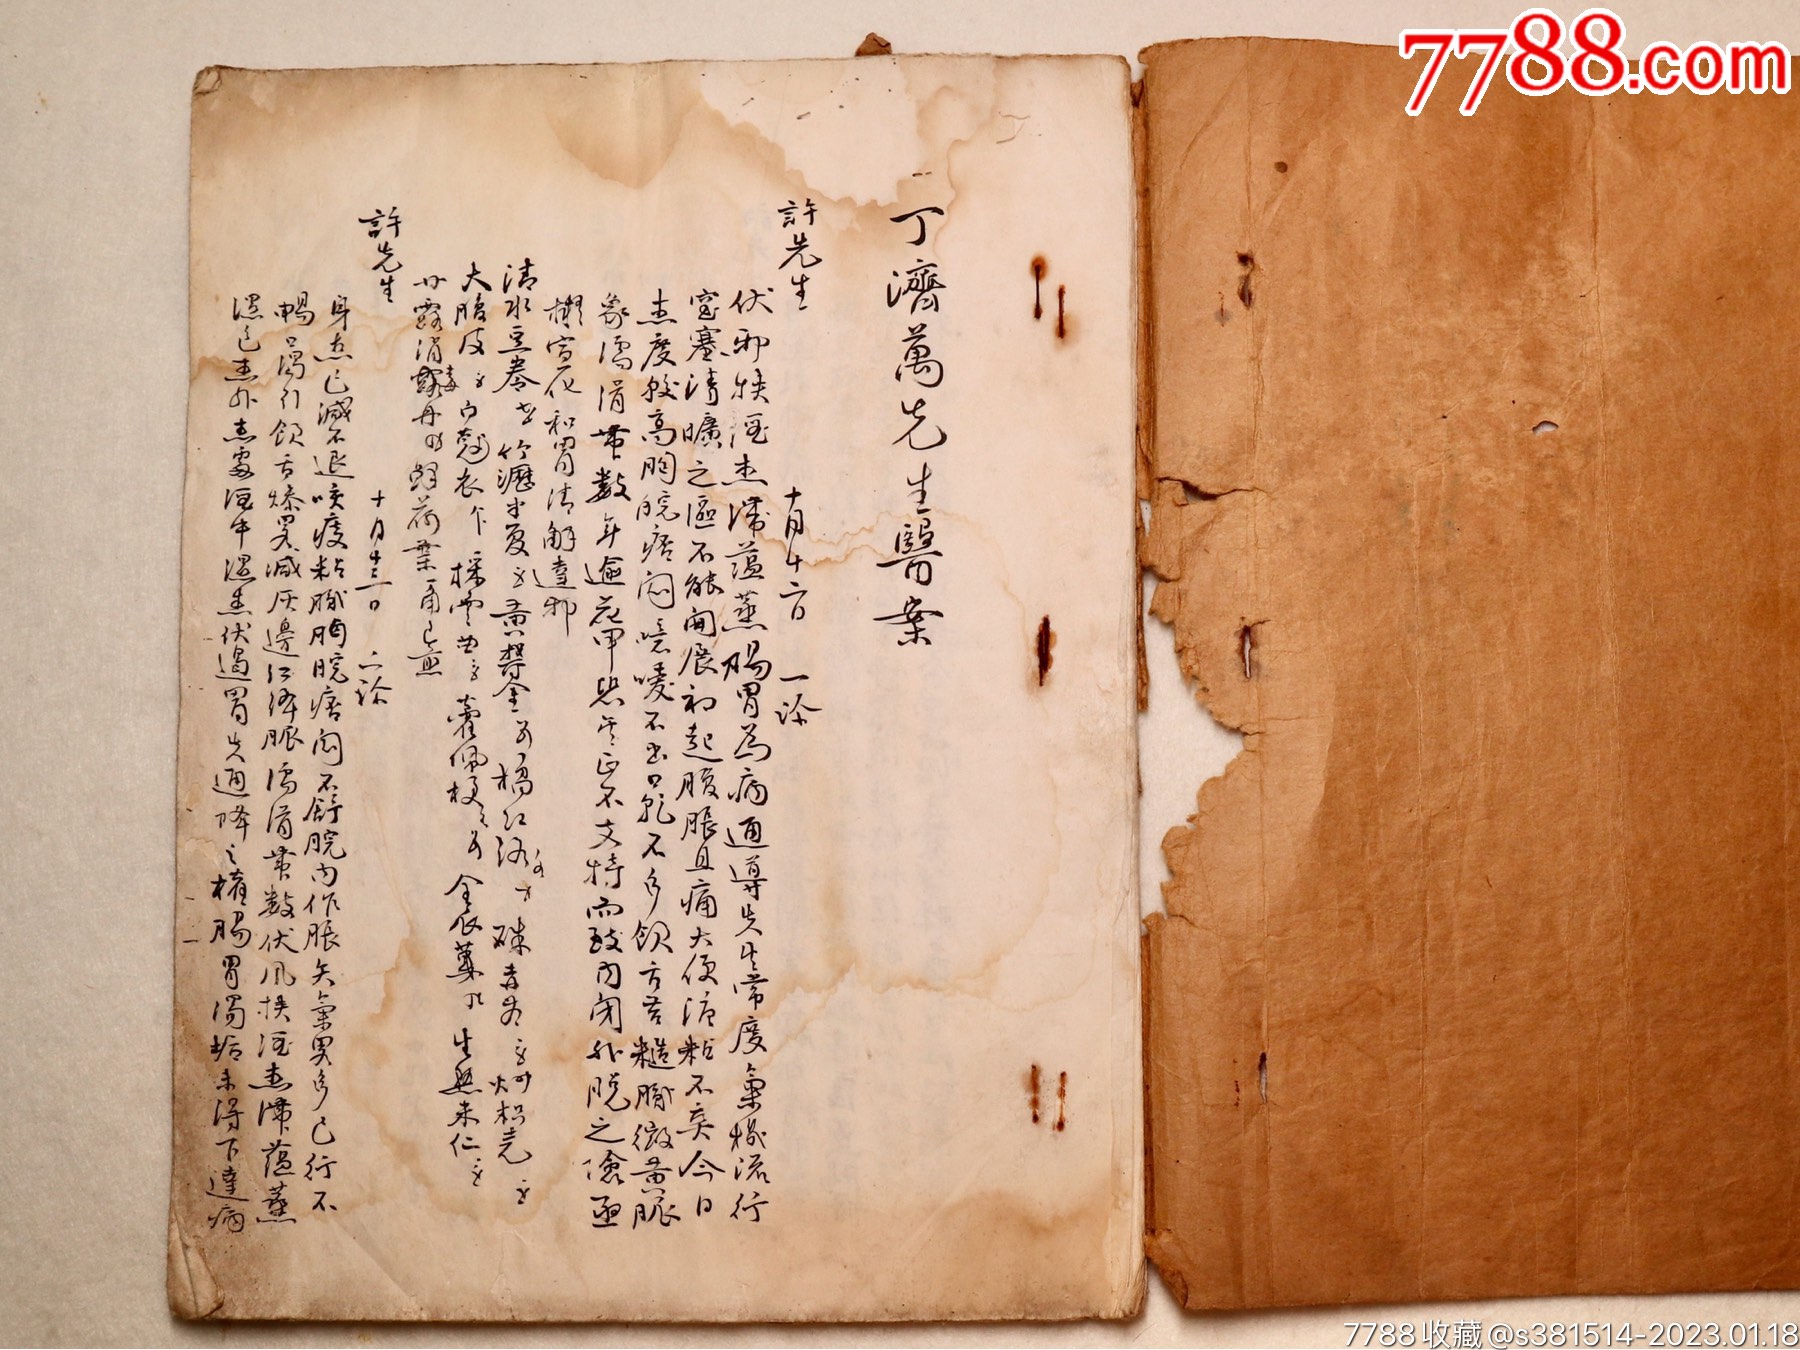 7788.com
丁濟萬先生醫案
許先生 十月十六日 一診
伏邪挾濕熱滯蘊蒸腸胃為病通導失其常度氣機流行
窒塞清曠之區不能開展初起腹脹且痛大便溏粘不爽今日
熱度較高胸脘痞悶噫噯不出口乾不多飲舌苔糙膩微黃脈
象濡滑帶數年逾花甲恐其正不支持而致內閉外脫之險亟
擬宣化和胃清解達邪
清水豆卷 竹瀝半夏 黃鬱金 橘紅絡 炒枳壳
大腹皮 白蔻衣 藿佩梗 生熟米仁
甘露消毒丹 鮮荷葉一角
許先生 十月廿三日 二診
身熱已減不退咳痰粘膩胸脘痞悶不舒脘內作脹矢氣異多已行不
暢口渴引飲舌燥畧減灰邊紅絳脈濡滑帶數伏風挾濕熱滯蘊蒸
濕已熱外熱處濕中濕熱伏遏胃失通降之權腸胃濁垢未得下達病
7788收藏@s381514-2023.01.18